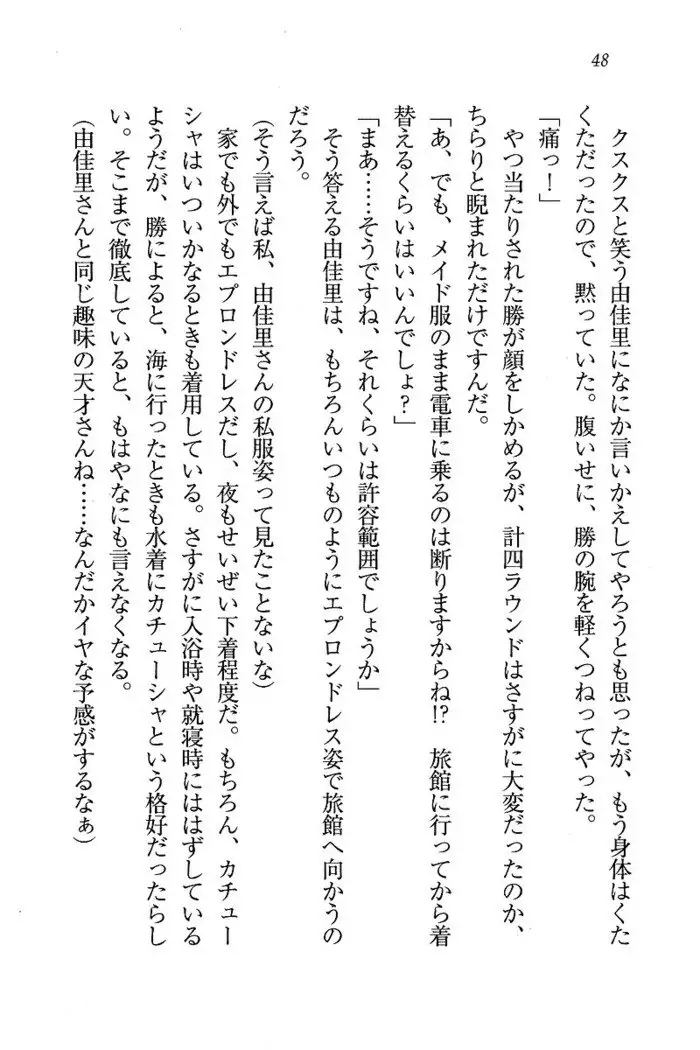 48
　クスクスと笑う由佳里になにか言いかえしてやろうとも思ったが、もう身体はくた
くただったので、黙っていた。腹いせに、勝の腕を軽くつねってやった。
「痛っ！」
　やつ当たりされた勝が顔をしかめるが、計四ラウンドはさすがに大変だったのか、
ちらりと睨まれただけですんだ。
「あ、でも、メイド服のまま電車に乗るのは断りますからね!?　旅館に行ってから着
替えるくらいはいいんでしょ？」
「まあ……そうですね、それくらいは許容範囲でしょうか」
　そう答える由佳里は、もちろんいつものようにエプロンドレス姿で旅館へ向かうの
だろう。
（そう言えば私、由佳里さんの私服姿って見たことないな）
　家でも外でもエプロンドレスだし、夜もせいぜい下着程度だ。もちろん、カチュー
シャはいついかなるときも着用している。さすがに入浴時や就寝時にははずしている
ようだが、勝によると、海に行ったときも水着にカチューシャという格好だったらし
い。そこまで徹底していると、もはやなにも言えなくなる。
（由佳里さんと同じ趣味の天才さんね……なんだかイヤな予感がするなぁ）